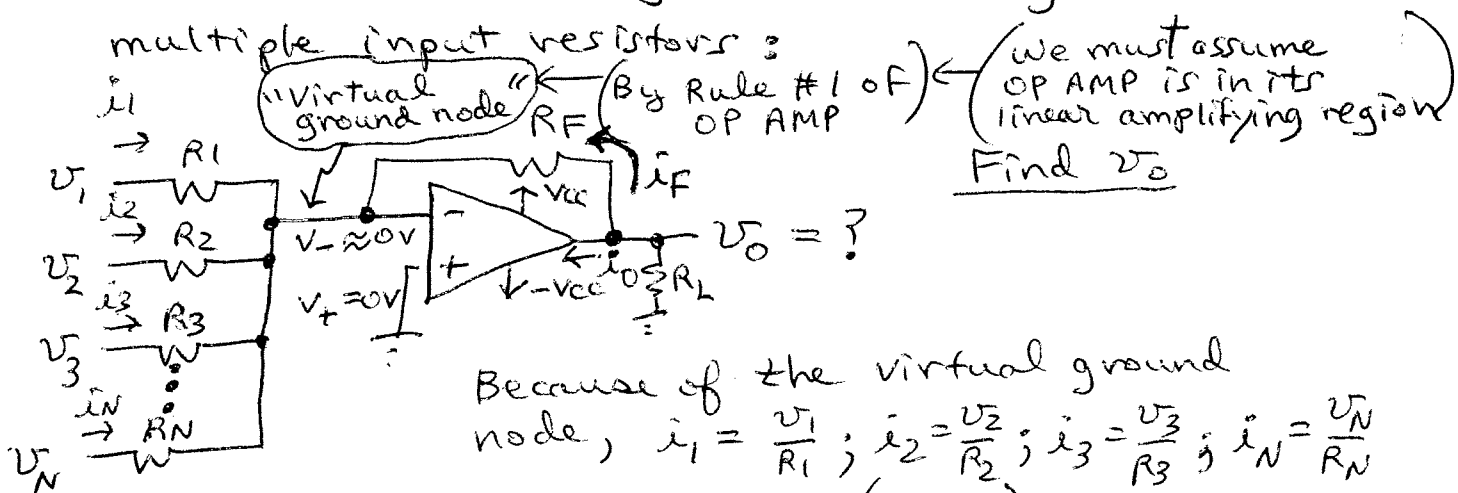 multiple input resistors :
"virtual ground node"
(By Rule #1 of OP AMP)
(we must assume OP AMP is in its linear amplifying region)
Find v₀
i1
→
v₁
R1
i2
→
v₂
R2
i3
→
v₃
R3
iN
→
vN
RN
RF
iF
V₋≈0V
V₊=0V
-
+
Vcc
-Vcc
i₀
RL
v₀ = ?
Because of the virtual ground
node, i₁ = v₁/R1 ; i₂ = v₂/R₂ ; i₃ = v₃/R3 ; iN = vN/RN